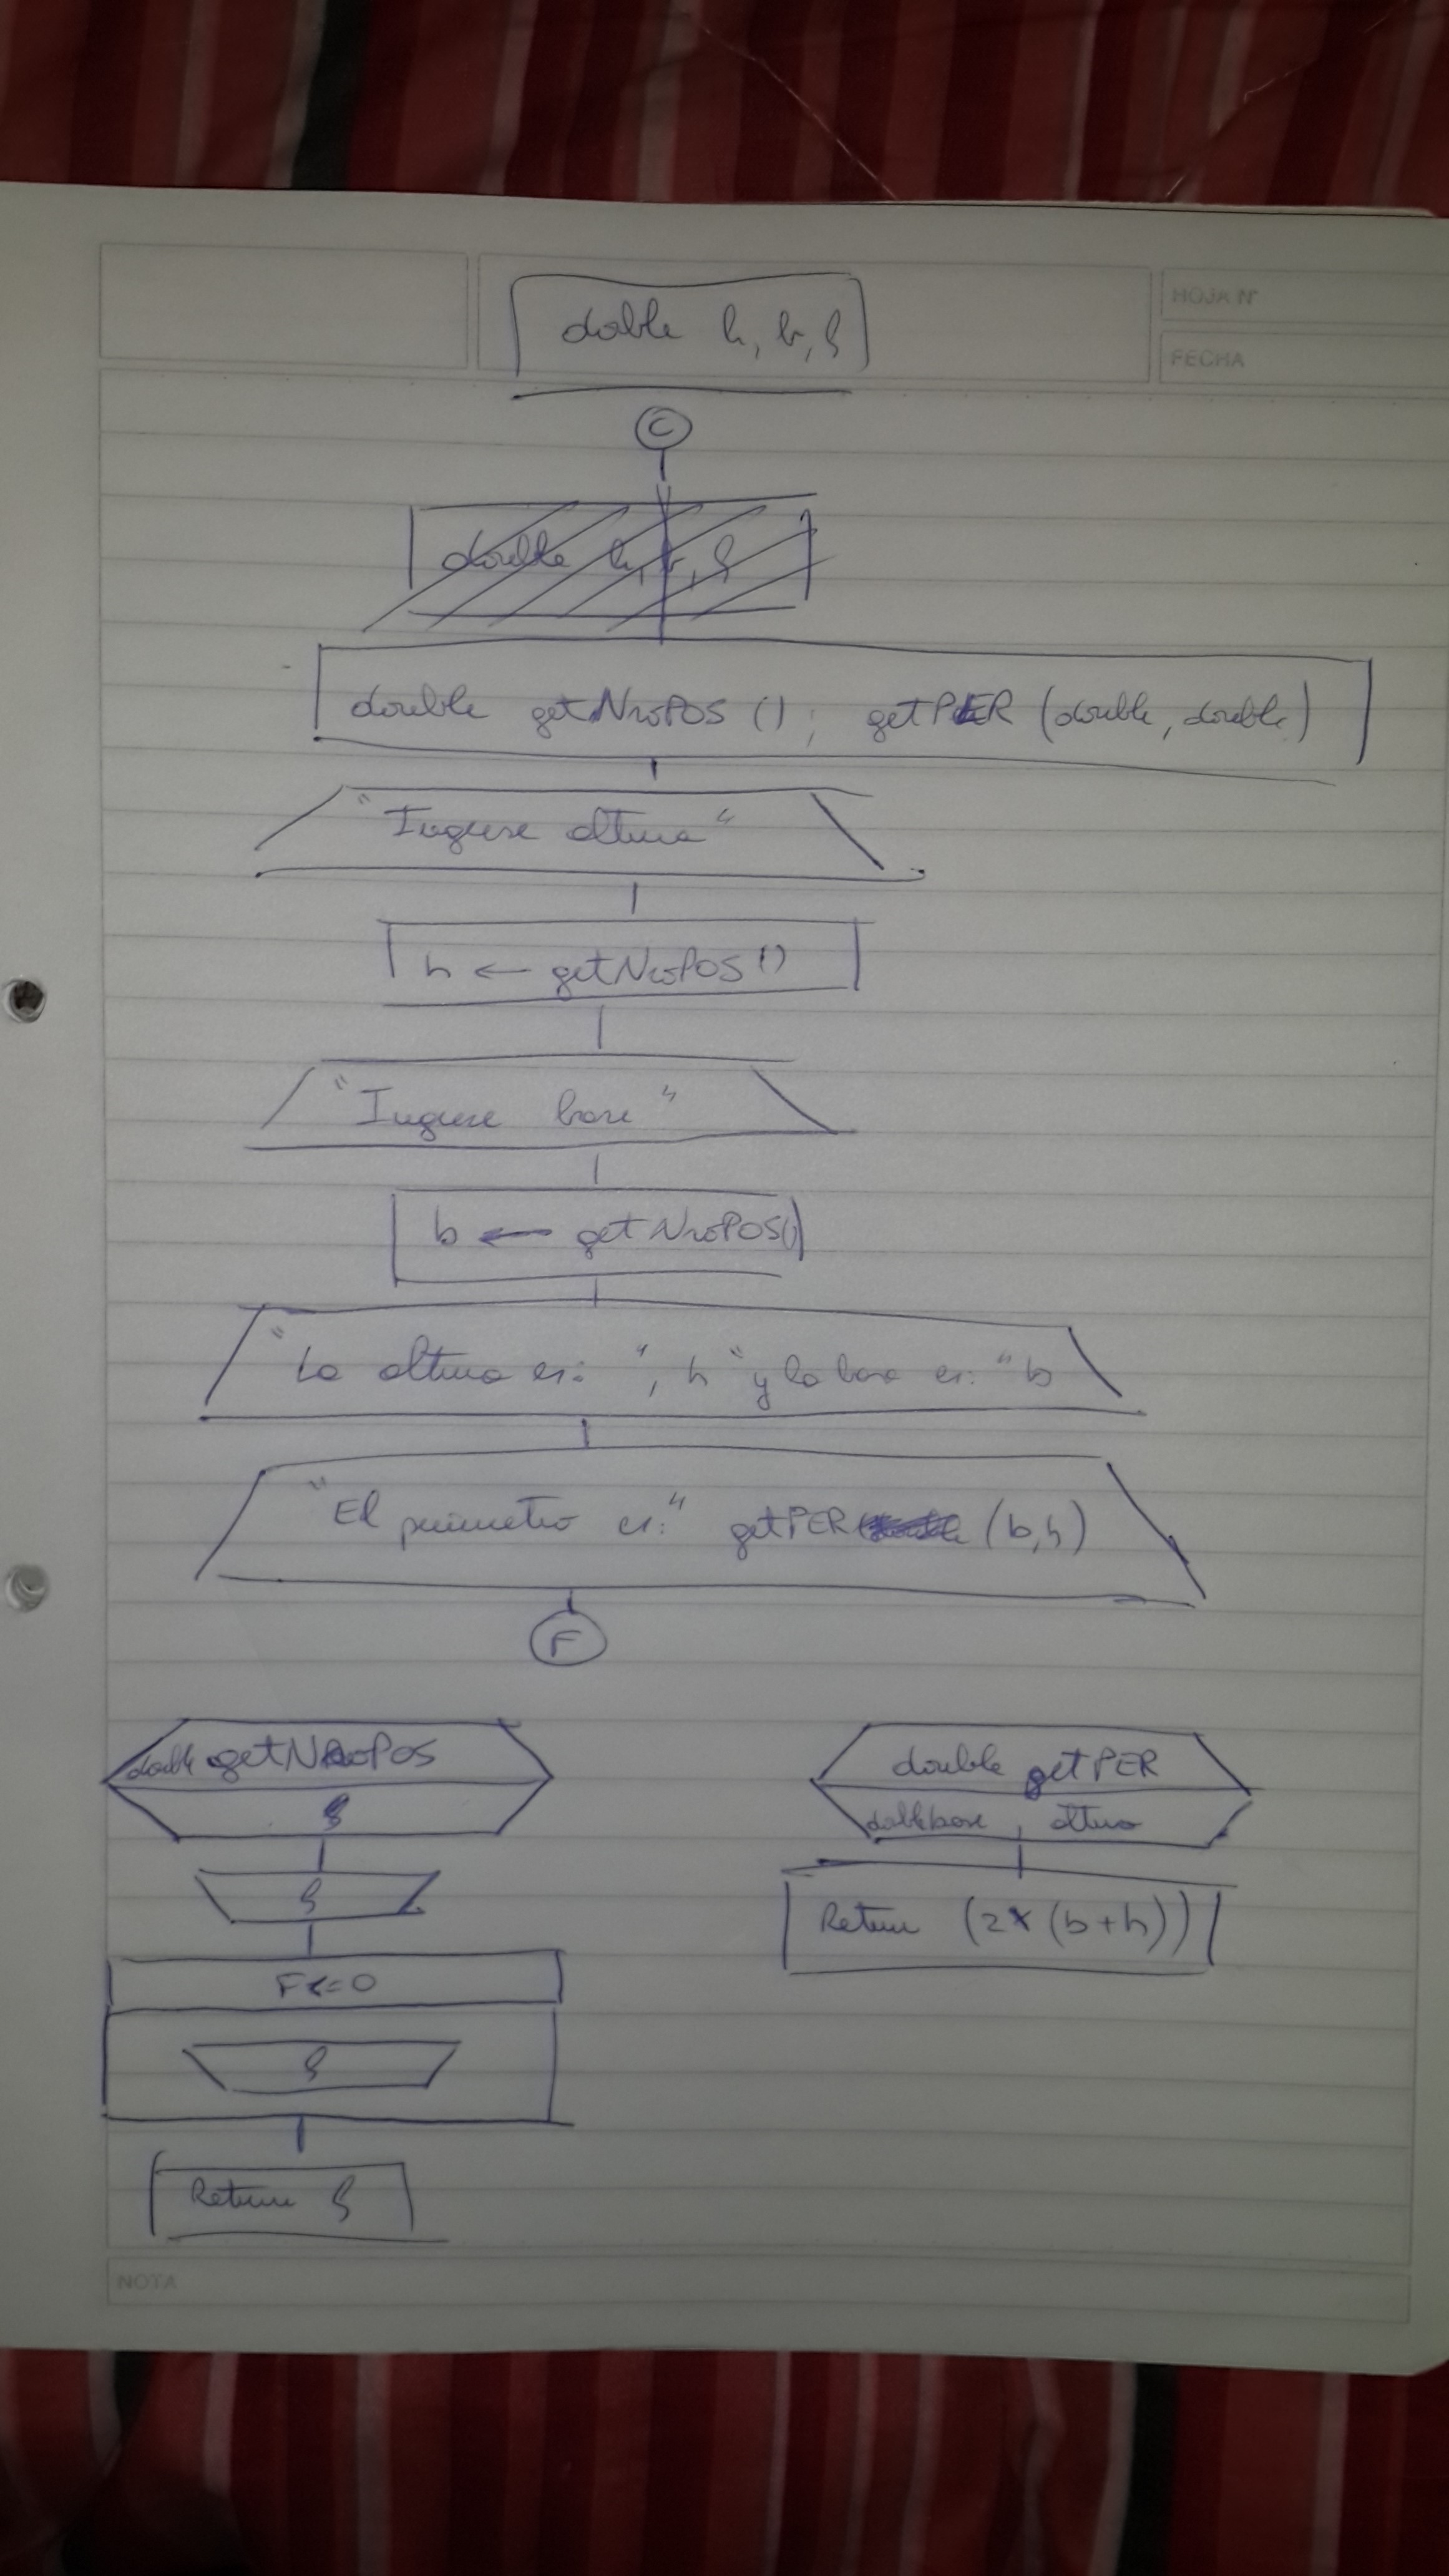 HOJA N°
FECHA
doble h, b, f
C
double h, b, f
double getNroPOS (); getPER (double, double)
"Ingrese altura"
h ← getNroPOS ()
"Ingrese base"
b ← getNroPOS()
"La altura es: ", h "y la base es: " b
"El perimetro es:" getPER (b,h)
F
double getNroPos
f
f
F<=0
f
Return f
double getPER
doble base, altura
Return (2*(b+h))
NOTA